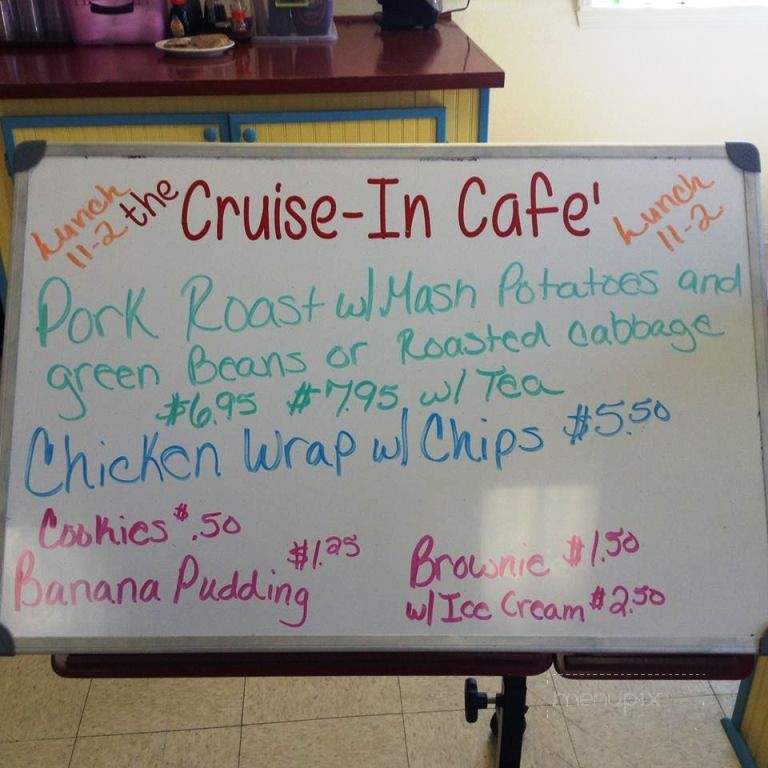 Lunch 11-2 the Cruise-In Cafe' Lunch 11-2
Pork Roast w/ Mash Potatoes and
green Beans or Roasted cabbage
$6.95 $7.95 w/ Tea
Chicken Wrap w/ Chips $5.50
Cookies $.50
Banana Pudding $1.25
Brownie $1.50
w/ Ice Cream $2.50
menupix